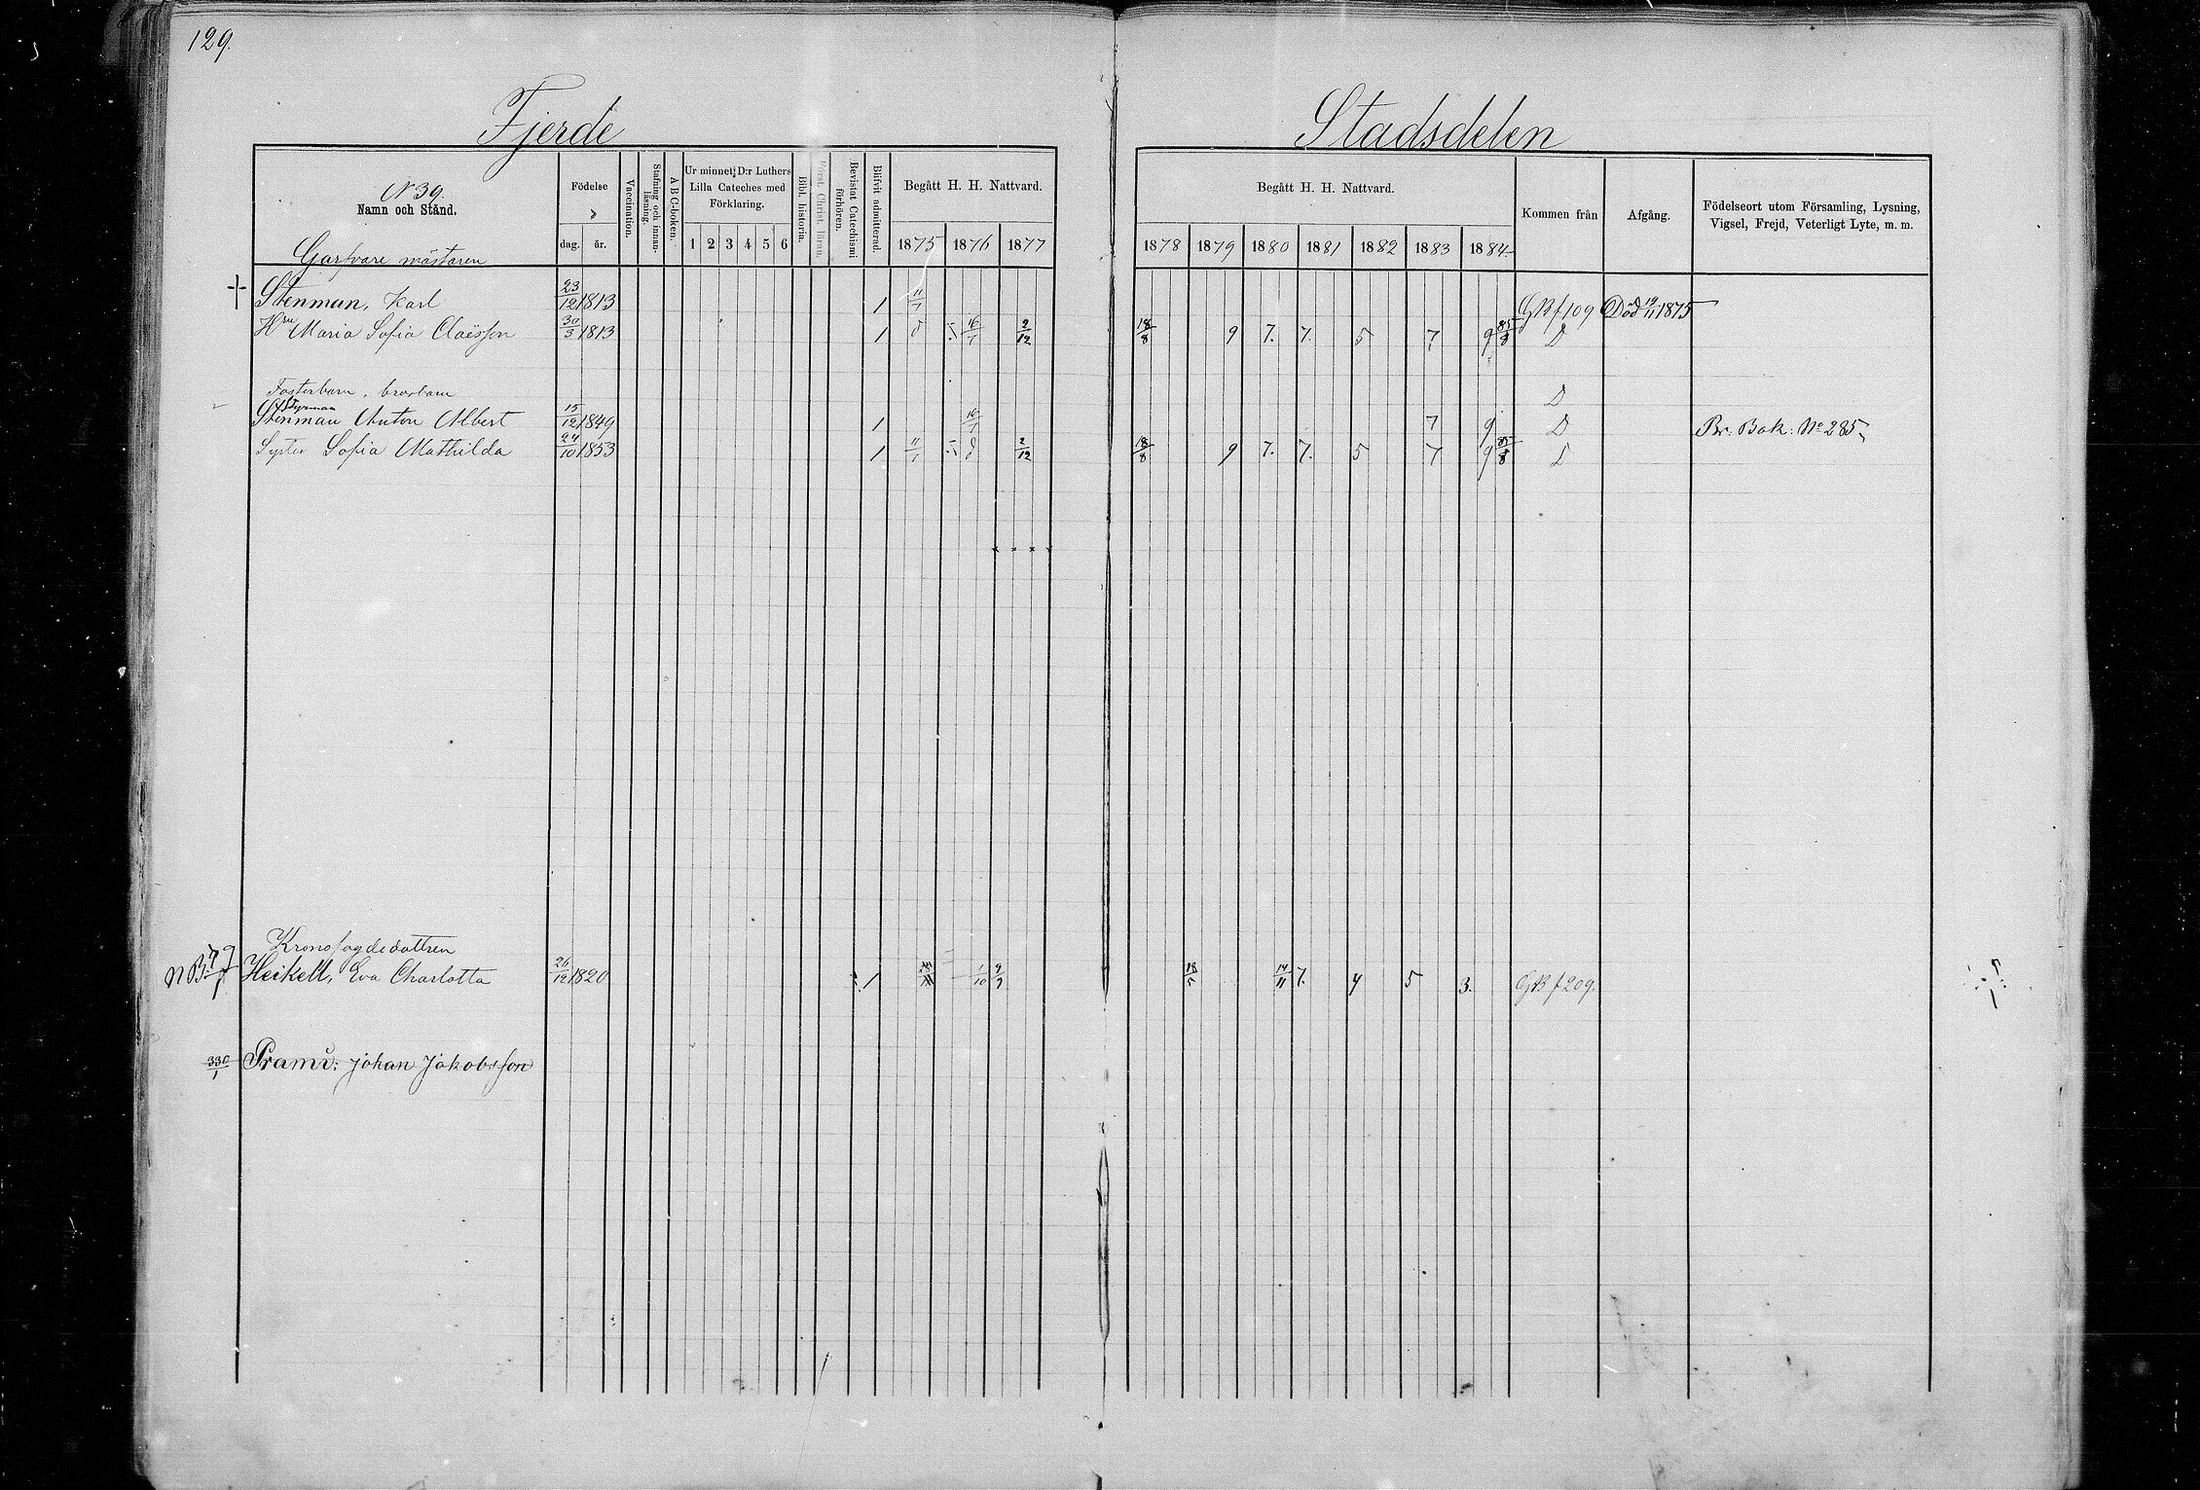 129.
Fjerde Stadsdelen
N 39.
Namn och Stånd.
Födelse
dag. år.
Vaccination.
Stafning och innanläsning.
A B C-boken.
Ur minnet: D:r Luthers Lilla Cateches med Förklaring.
1 2 3 4 5 6
Bibl. historia.
Först. Christ. läran.
Bevistat Catechismi förhören.
Blifvit admitterad.
Begått H. H. Nattvard.
1875 1876 1877
Begått H. H. Nattvard.
1878 1879 1880 1881 1882 1883 1884
Kommen från
Afgång.
Födelseort utom Församling, Lysning, Vigsel, Frejd, Veterligt Lyte, m. m.
Garfvare mästaren
† Stenman, Karl 23/12 1813 1 11/7 GB f 109 Död 19/11 1875
Hru Maria Sofia Claësson 30/3 1813 1 16/7 2/12 18/8 9 7. 7. 5 7 9 85/8 D
Fosterbarn, brorsbarn D
Stenman Anton Albert 15/12 1849 1 16/7 7 9 D Br: Bok: No 285
Syster Sofia Mathilda 24/10 1853 1 11/7 2/12 18/8 9 7. 7. 5 7 9 85/8
Kronofogdedottren
NB: Heikell, Eva Charlotta 26/12 1820 1 1/10 9/9 18/5 14/11 7. 4 5 3. GB f 209.
330/1 Pram: Johan Jakobsson